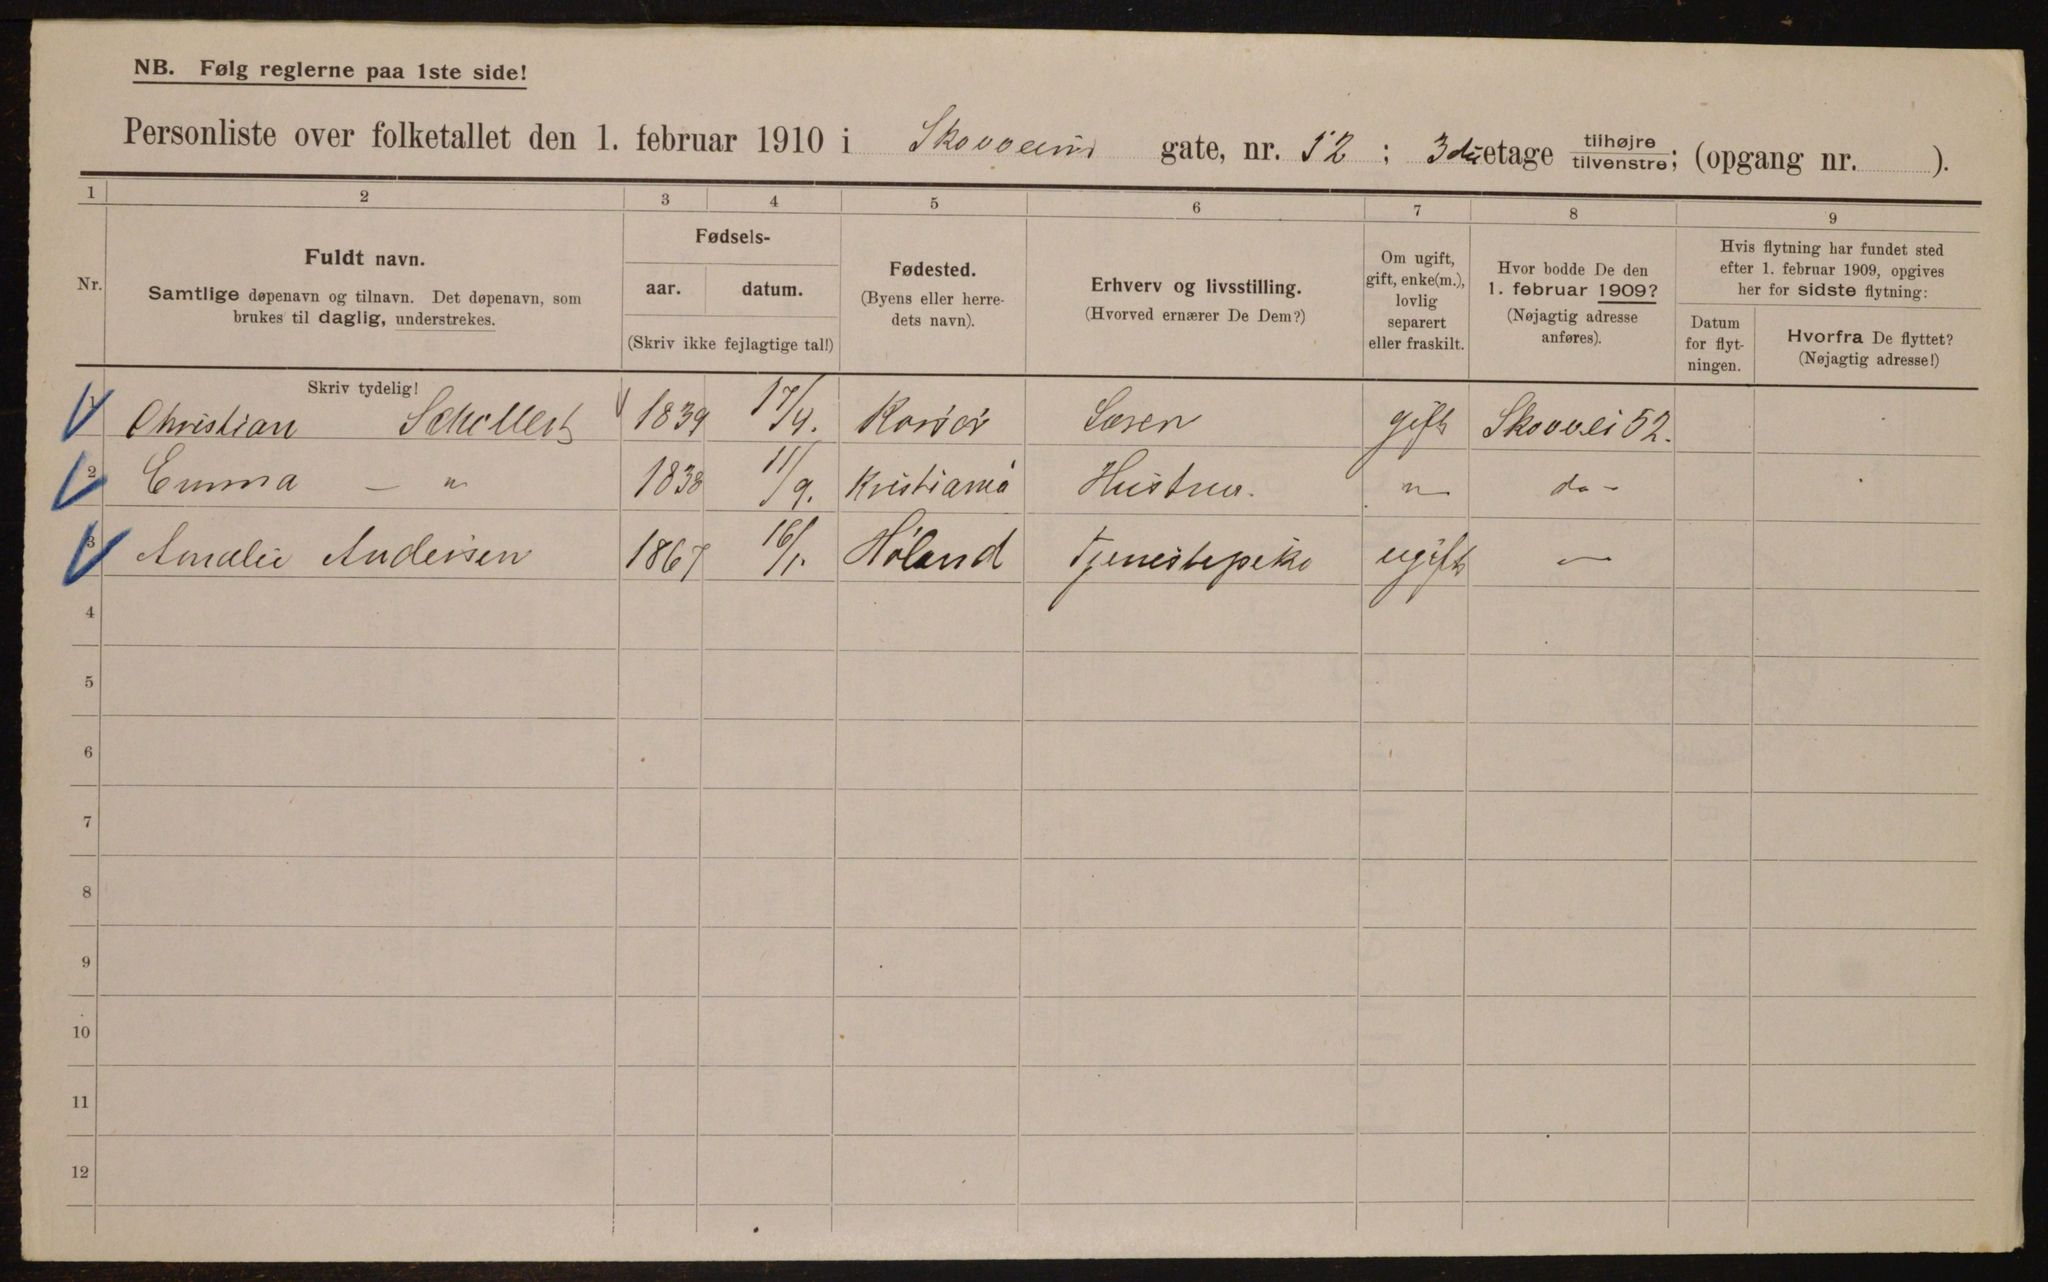 NB. Følg reglerne paa 1ste side!
Personliste over folketallet den 1. februar 1910 i Skovveien gate, nr. 52 ; 3die etage tilhøjre tilvenstre; (opgang nr. ).
1 2 3 4 5 6 7 8 9
Nr.
Fuldt navn.
Samtlige døpenavn og tilnavn. Det døpenavn, som
brukes til daglig, understrekes.
Skriv tydelig!
Fødsels-
aar. datum.
(Skriv ikke fejlagtige tal!)
Fødested.
(Byens eller herre-
dets navn).
Erhverv og livsstilling.
(Hvorved ernærer De Dem?)
Om ugift,
gift, enke(m.),
lovlig
separert
eller fraskilt.
Hvor bodde De den
1. februar 1909?
(Nøjagtig adresse
anføres).
Hvis flytning har fundet sted
efter 1. februar 1909, opgives
her for sidste flytning:
Datum
for flyt-
ningen.
Hvorfra De flyttet?
(Nøjagtig adresse!)
Christian 1839 17/4. Korsör gift Skovvei 52.
2 Emma — " 1838 11/9. Kristiania Hustru. " do -
3 Amalie Andersen 1867 16/1. Höland Tjenestepike ugift —
4
5
6
7
8
9
10
11
12